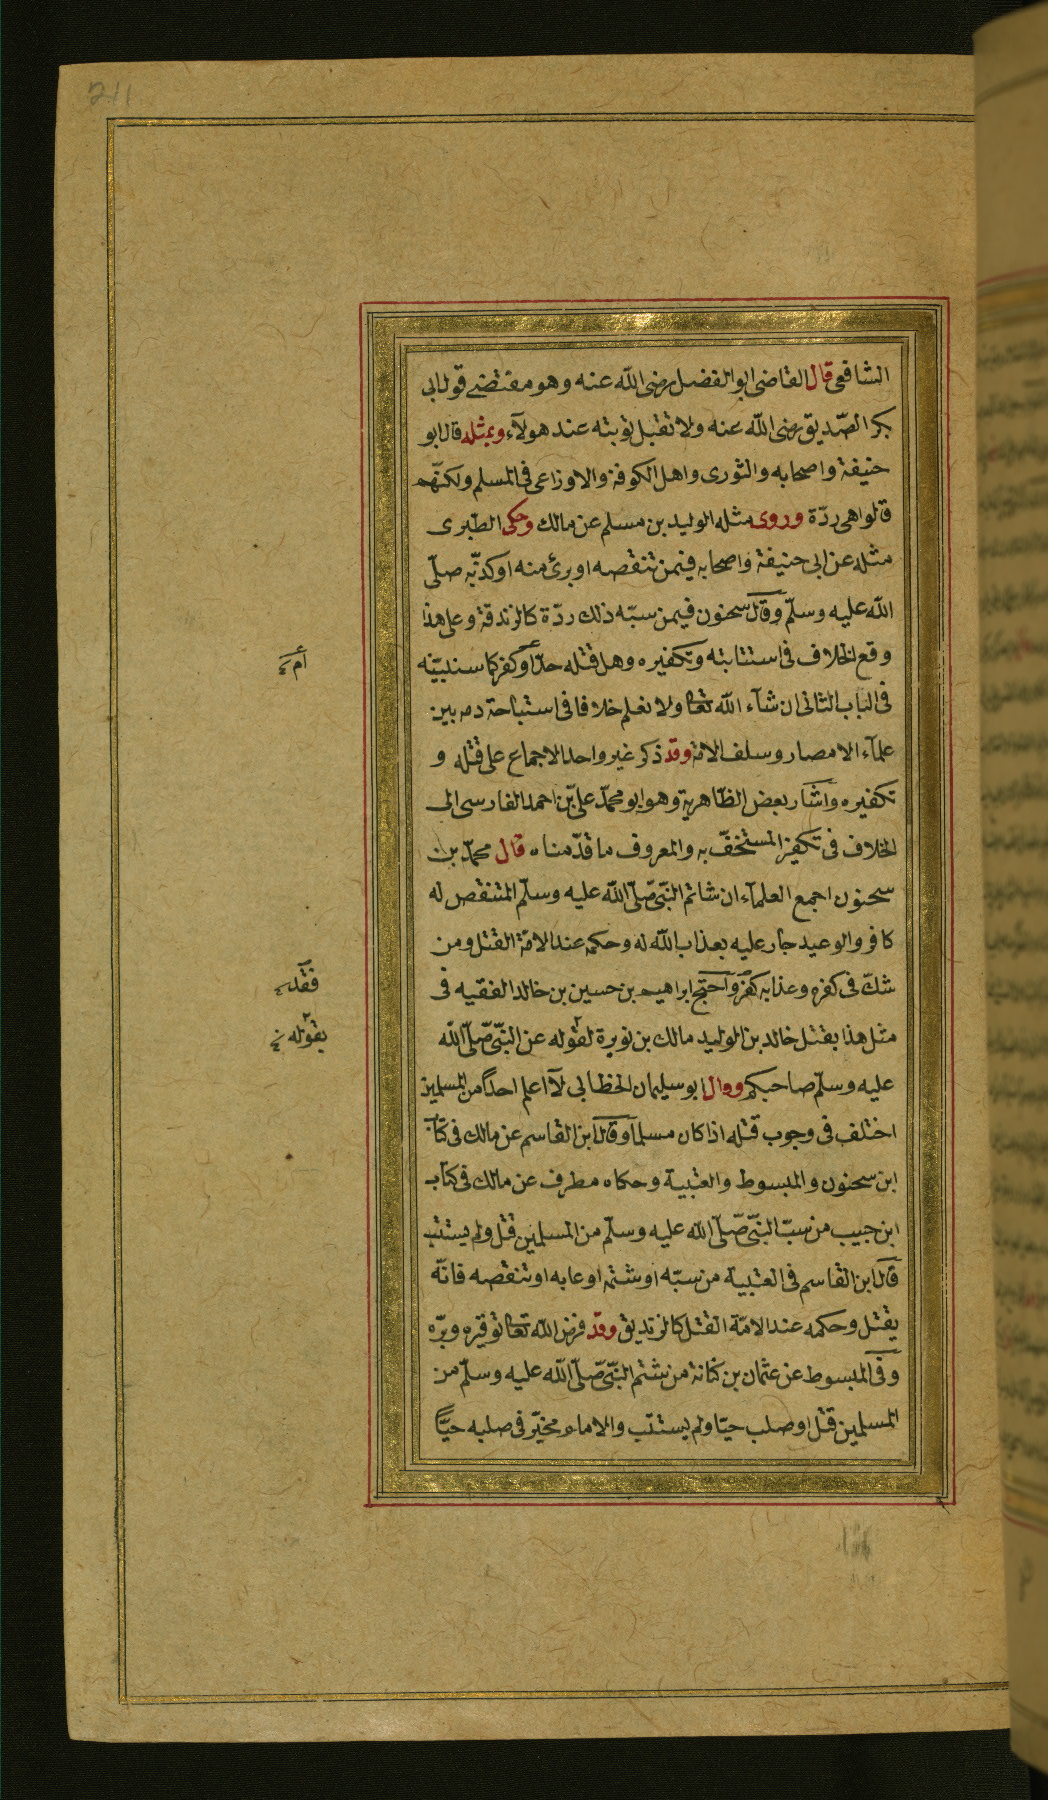 211
الشافعى قال القاضى ابو الفضل رضى الله عنه وهو مقتضے قول ابى
بكر الصّديق رضى الله عنه ولا تقبل توبته عند هولآء وبمثله قال ابو
حنيفة واصحابه والثورى واهل الكوفة والاوزاعى فى المسلم ولكنّهم
قالوا هى ردّة وروى مثله الوليد بن مسلم عن مالك وحكى الطبرى
مثله عن ابى حنيفة واصحابه فيمن تنقصه او برئ منه او كذّبه صلّى
الله عليه وسلّم وقال سحنون فيمن سبّه ذلك ردّة كالزندقة وعلى هذا
وقع الخلاف فى استتابته وتكفيره وهل قتله حدّ او كفر كما سنبيّنه
أم
فى الباب الثانى ان شآء الله تعا ولا نعلم خلافا فى استباحة دمه بين
علمآء الامصار وسلف الامّة وقد ذكر غير واحد الاجماع على قتله و
تكفيره واشار بعض الظّاهرية وهو ابو محمّد علىّ بن احمد الفارسى الى
الخلاف فى تكفير المستخفّ به والمعروف ما قدّمناه قال محمّد بن
سحنون اجمع العلمآء ان شاتم النّبىّ صلّى الله عليه وسلّم المتنقص له
كافر والوعيد جار عليه بعذاب الله له وحكمه عند الامّة القتل ومن
شكّ فى كفره وعذابه كفر واحتج ابراهيم بن حسين بن خالد الفقيه فى
فقد
مثل هذا بقتل خالد بن الوليد مالك بن نويرة لقوله عن النّبىّ صلّى الله
بقوله
عليه وسلّم صاحبكم وقال ابو سليمان الخطابى لآ اعلم احدًا من المسلمين
اختلف فى وجوب قتله اذا كان مسلما وقال ابن القاسم عن مالك فى كتاب
ابن سحنون والمبسوط والعتبية وحكاه مطرف عن مالك فى كتاب
ابن حبيب من سبّ النّبىّ صلّى الله عليه وسلّم من المسلمين قتل ولم يستتب
قال ابن القاسم فى العتبية من سبّه او شتمه او عابه او تنقصه فانّه
يقتل وحكمه عند الامّة القتل كالزنديق وقد فرض الله تعا توقيره وبرّه
وفى المبسوط عن عثمان بن كنانة من شتم النّبىّ صلّى الله عليه وسلّم من
المسلمين قتل او صلب حيّا ولم يستتب والامام مخيّر فى صلبه حيًّا